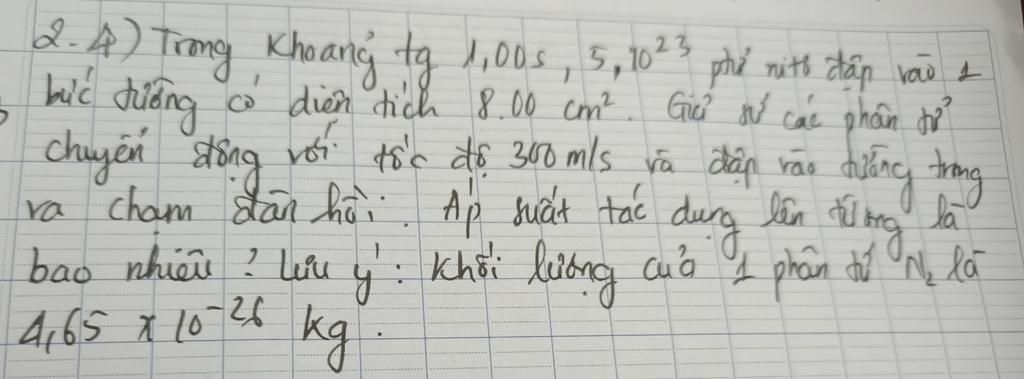 2.4) Trong khoảng tg 1,00s, 5,10²³ phtử nitơ đập vào 1
bức tường có diện tích 8.00 cm². Giả sử các phân tử
chuyển động với tốc độ 300 m/s và đập vào tường trong
va chạm đàn hồi. Áp suất tác dụng lên tường là
bao nhiêu? Lưu ý: Khối lượng của 1 phân tử N₂ là
4,65 x 10⁻²⁶ kg.